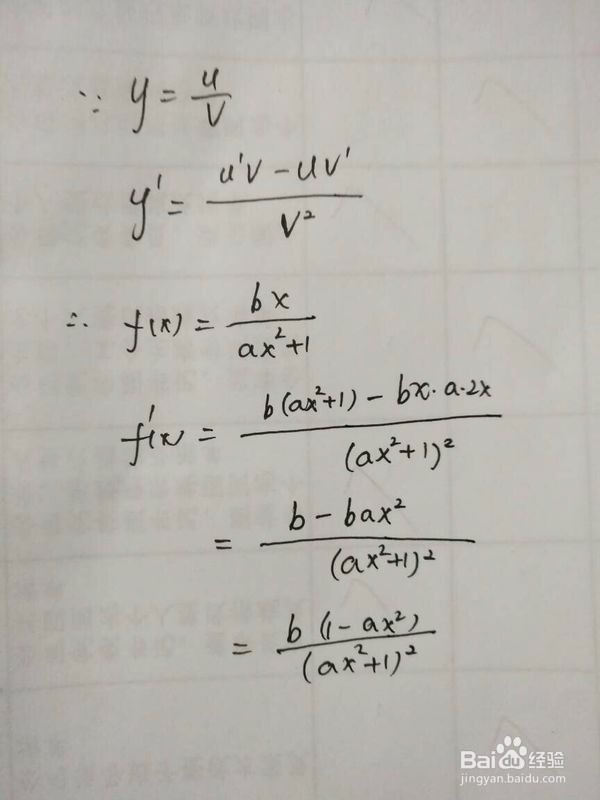 ∵ y = u/v
y' = (u'v - uv')/v²
∴ f(x) = bx/(ax²+1)
f'(x) = (b(ax²+1) - bx·a·2x)/(ax²+1)²
= (b - bax²)/(ax²+1)²
= b(1-ax²)/(ax²+1)²
Bai du 经验
jingyan.baidu.com